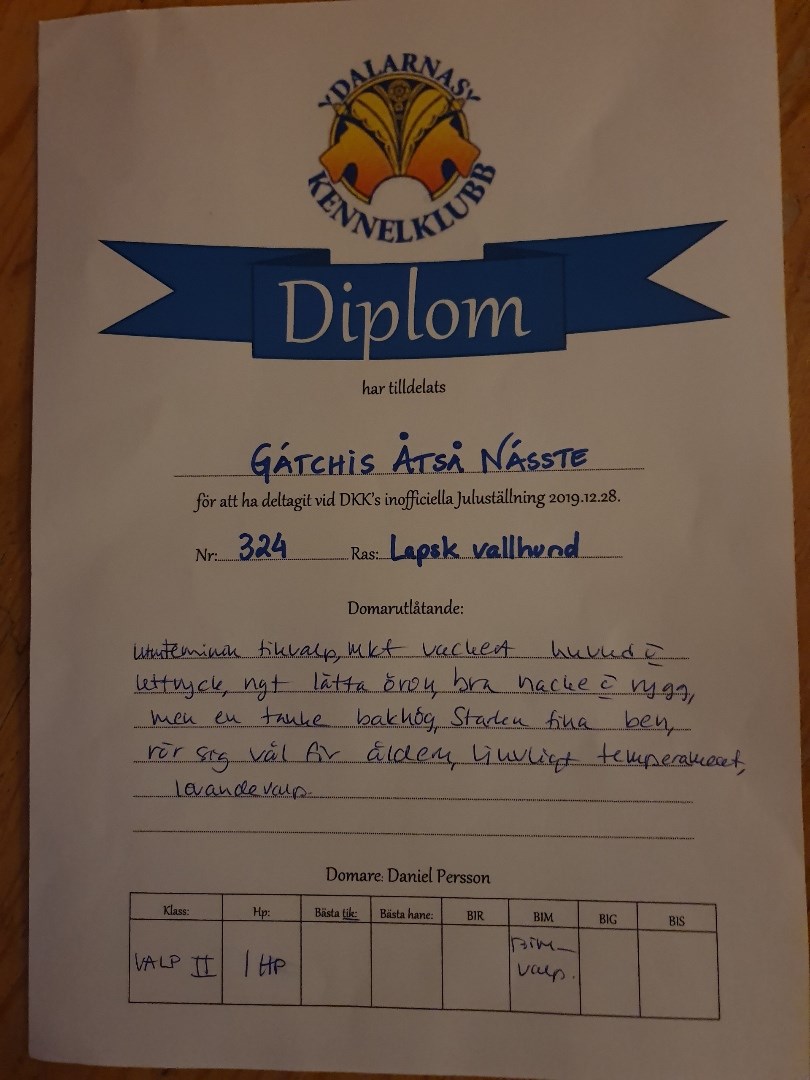 DALARNAS
KENNELKLUBB
Diplom
har tilldelats
GÁTCHIS ÅTSÅ NÁSSTE
för att ha deltagit vid DKK's inofficiella Juluställning 2019.12.28.
Nr: 324 Ras: Lapsk vallhund
Domarutlåtande:
tikvalp, mkt vackert huvud
uttryck, ngt lätta öron, bra nacke c̄ rygg,
men en tanke bakhög, Starka fina ben,
rör sig väl för åldern, ljuvligt temperament,
lovande valp.
Domare: Daniel Persson
Klass: Hp: Bästa tik: Bästa hane: BIR BIM BIG BIS
VALP II 1 HP BIM-
valp.